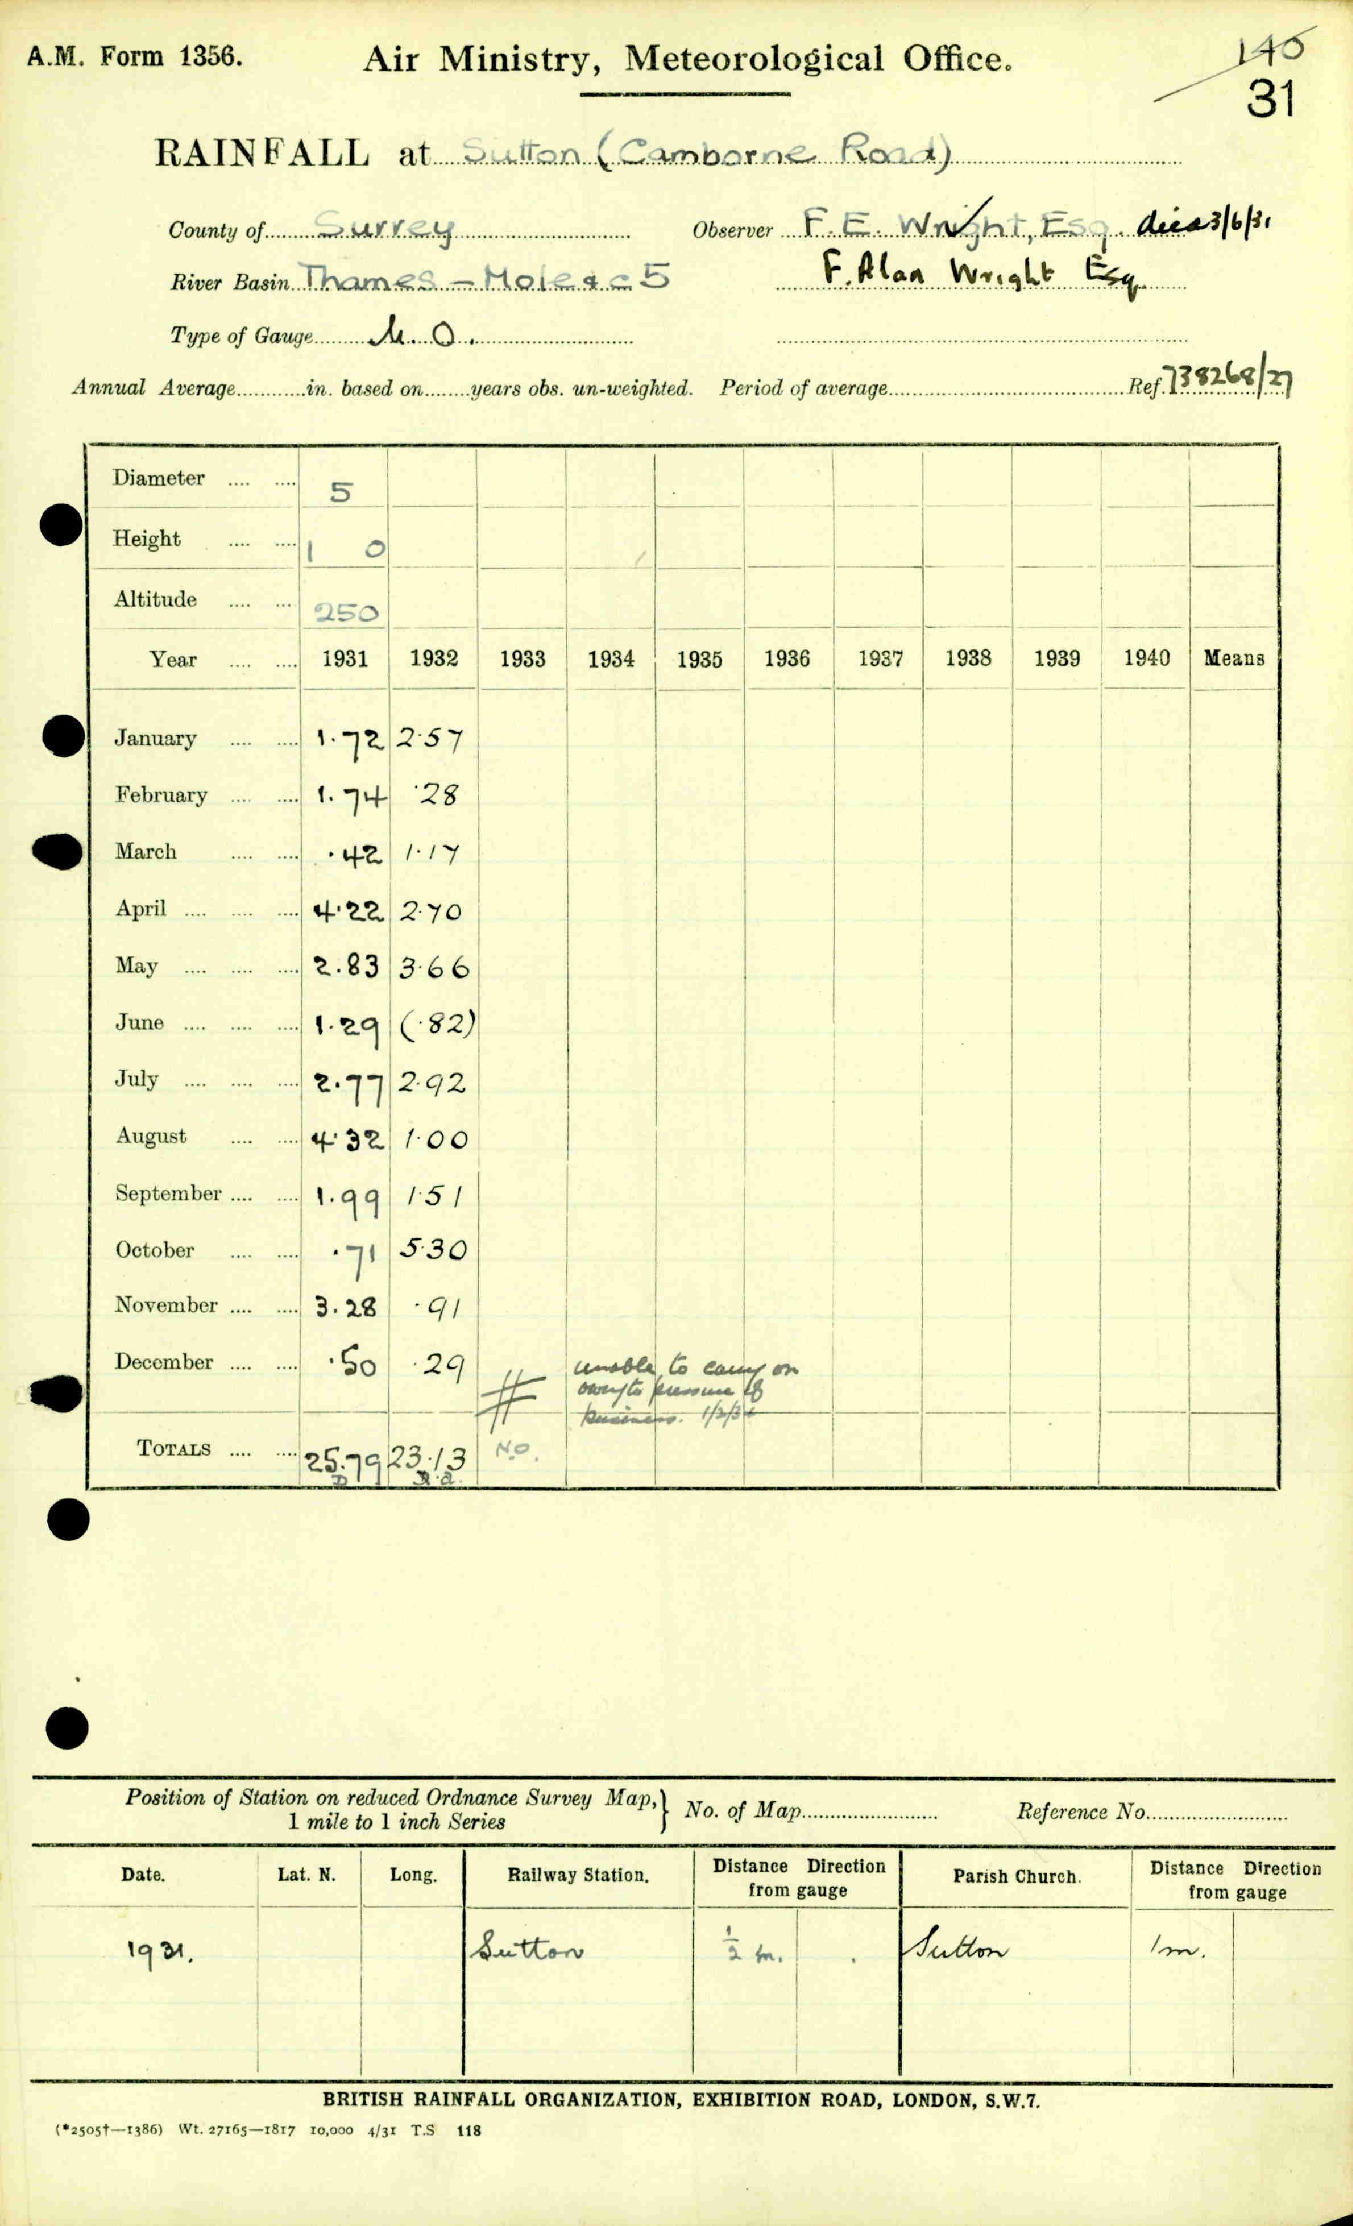 A.M. Form 1356. Air Ministry, Meteorological Office. 140
31
RAINFALL at Sutton (Camborne Road)
County of Surrey Observer F. E. Wright, Esq. died 3/6/31
River Basin Thames - Mole &c 5 F. Alan Wright Esq.
Type of Gauge M. O.
Annual Average in. based on years obs. un-weighted. Period of average Ref. 738268/27
Diameter 5
Height 1 0
Altitude 250
Year 1931 1932 1933 1934 1935 1936 1937 1938 1939 1940 Means
January 1.72 2.57
February 1.74 .28
March .42 1.17
April 4.22 2.70
May 2.83 3.66
June 1.29 (.82)
July 2.77 2.92
August 4.32 1.00
September 1.99 1.51
October .71 5.30
November 3.28 .91
December .50 .29 unable to carry on
owing to pressure of
business.
TOTALS 25.79 23.13 N.O.
Position of Station on reduced Ordnance Survey Map,} No. of Map Reference No.
1 mile to 1 inch Series
Date. Lat. N. Long. Railway Station. Distance Direction from gauge Parish Church. Distance Direction from gauge
1931. Sutton 1/2 m. Sutton 1m.
BRITISH RAINFALL ORGANIZATION, EXHIBITION ROAD, LONDON, S.W.7.
(*2505†—1386) Wt. 27165—1817 10,000 4/31 T.S 118